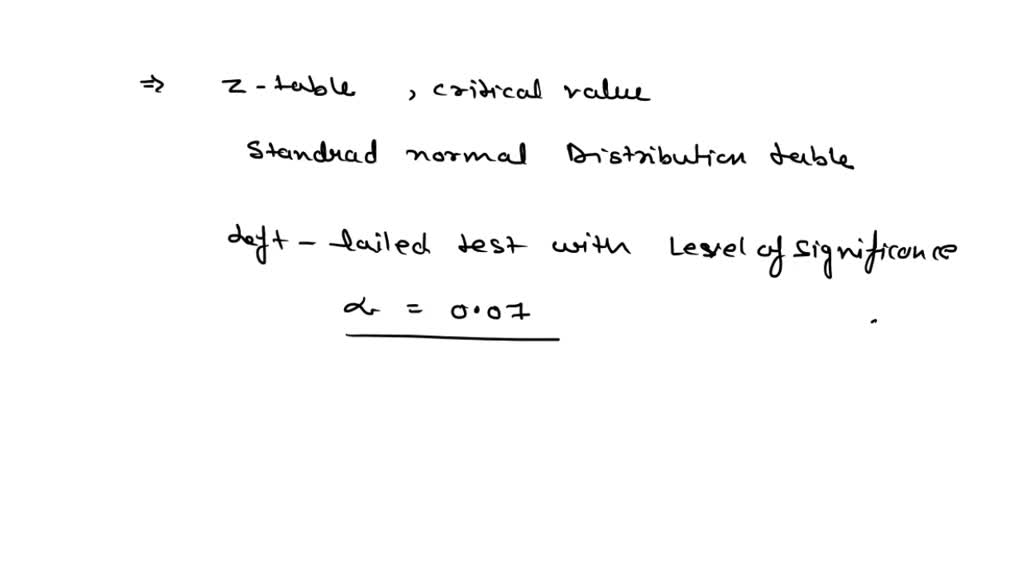 ⇒ z-table , critical value
Standrad normal Distribution table
left - tailed test with Level of significance
α = 0.07